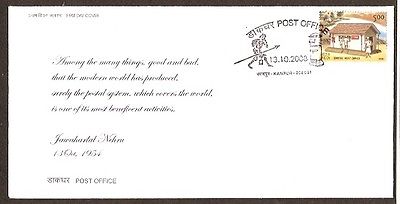 प्रथम दिवस आवरण FIRST DAY COVER
डाकघर POST OFFICE
13.10.2008
कानपुर - KANPUR - 208001
5.00
Among the many things, good and bad,
that the modern world has produced,
surely the postal system, which covers the world,
is one of its most beneficent activities.
Jawaharlal Nehru
13 Oct, 1954
डाकघर POST OFFICE